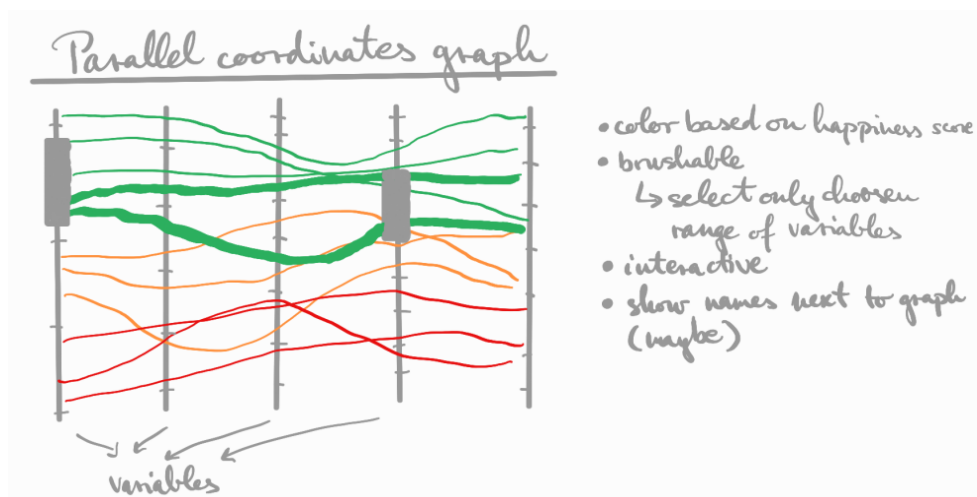 Parallel coordinates graph
• color based on happiness score
• brushable
↳ select only choosen
range of variables
• interactive
• show names next to graph
(maybe)
variables